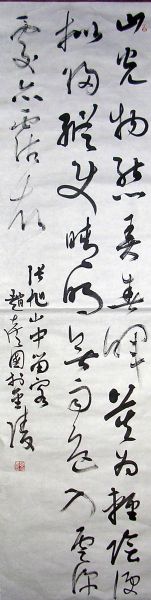 山光物態弄春暉莫為輕陰便
擬歸縱使晴明無雨色入雲深
處亦霑衣
張旭山中留客
趙 國於金陵